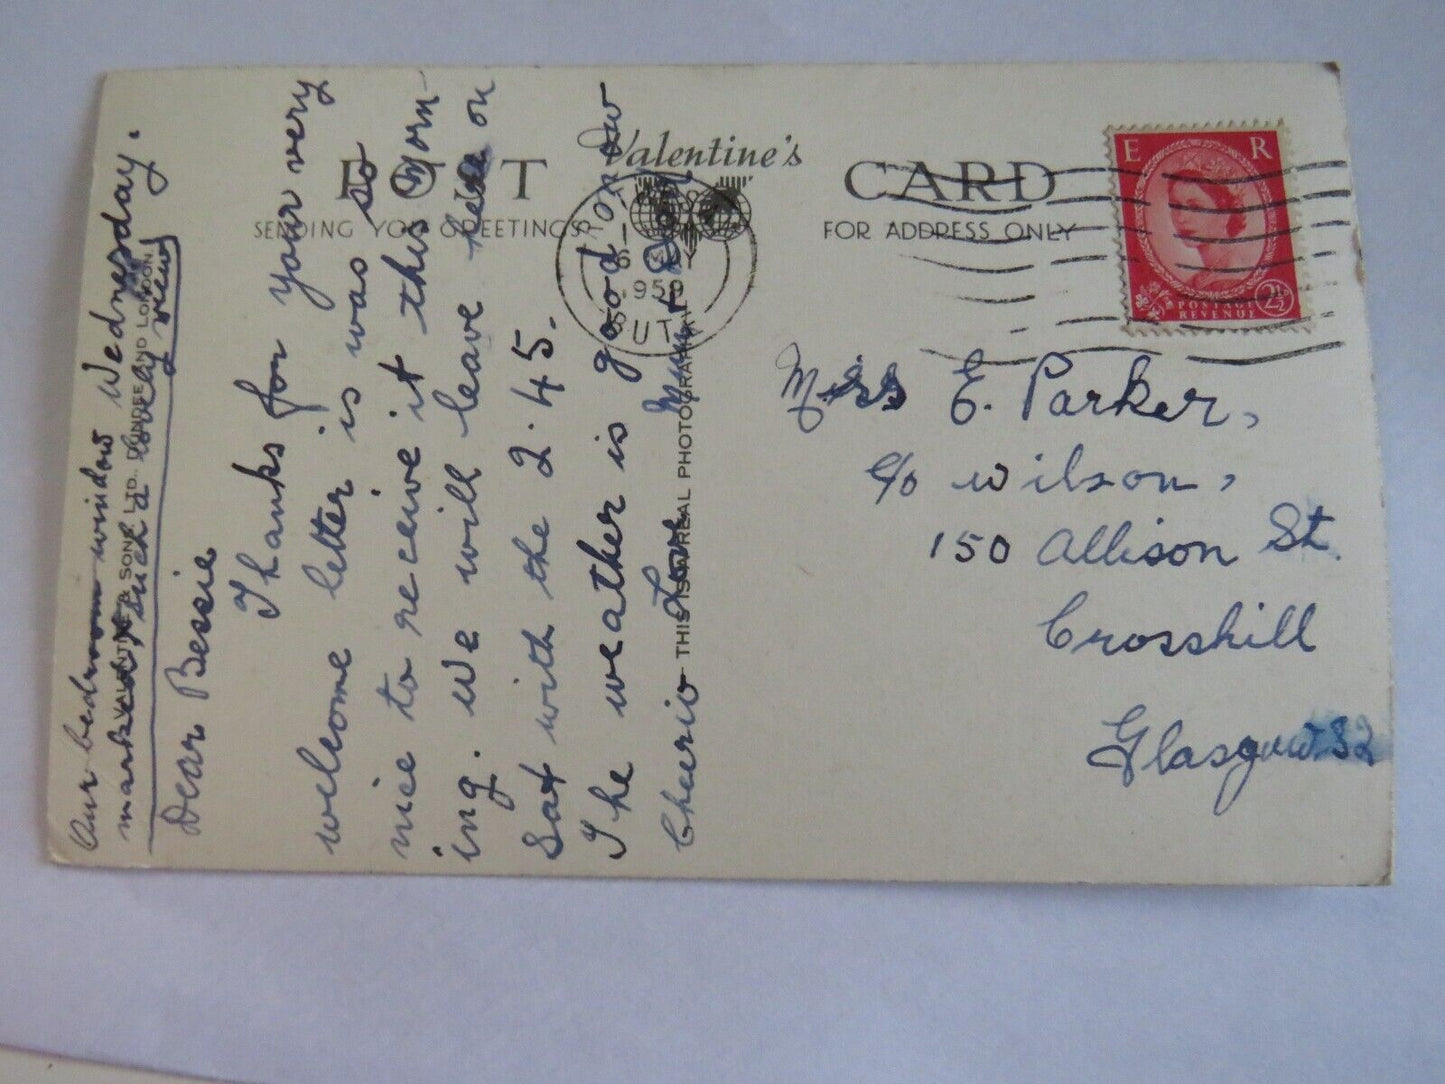 POST
Valentine's
CARD
SENDING YOU GREETINGS
FOR ADDRESS ONLY
E R
POSTAGE
REVENUE
2½
1959
SUT
VALENTINE & SONS LTD., DUNDEE AND LONDON
THIS IS A REAL PHOTOGRAPH
Wednesday.
Our bedroom window
marked, such a lovely view
Dear Bessie
Thanks for your very
welcome letter is was so
nice to receive it this morn-
ing. We will leave here on
Sat with the 2.45.
The weather is good now
Cheerio Love
Miss E. Parker,
c/o Wilson,
150 Allison St.
Crosshill
Glasgow S2